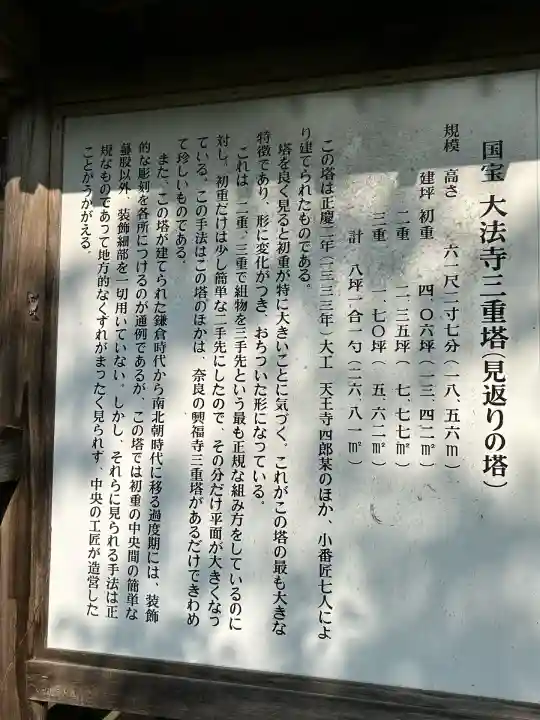 国宝 大法寺三重塔(見返りの塔)
規模 高さ 六一尺二寸七分(一八、五六m)
建坪 初重 四、〇六坪(一三、四二㎡)
二重 二、三五坪( 七、七七㎡)
三重 一、七〇坪( 五、六二㎡)
計 八坪一合一勺(二六、八一㎡)
この塔は正慶二年(一三三三年)大工 天王寺四郎某のほか、小番匠七人によ
り建てられたものである。
塔を良く見ると初重が特に大きいことに気づく、これがこの塔の最も大きな
特徴であり、形に変化がつき、おちついた形になっている。
これは、二重、三重で組物を三手先という最も正規な組み方をしているのに
対し、初重だけは少し簡単な二手先にしたので、その分だけ平面が大きくなっ
ている。この手法はこの塔のほかは、奈良の興福寺三重塔があるだけできわめ
て珍しいものである。
また、この塔が建てられた鎌倉時代から南北朝時代に移る過度期には、装飾
的な彫刻を各所につけるのが通例であるが、この塔では初重の中央間の簡単な
蟇股以外、装飾細部を一切用いていない。しかし、それらに見られる手法は正
規なものであって地方的なくずれがまったく見られず、中央の工匠が造営した
ことがうかがえる。